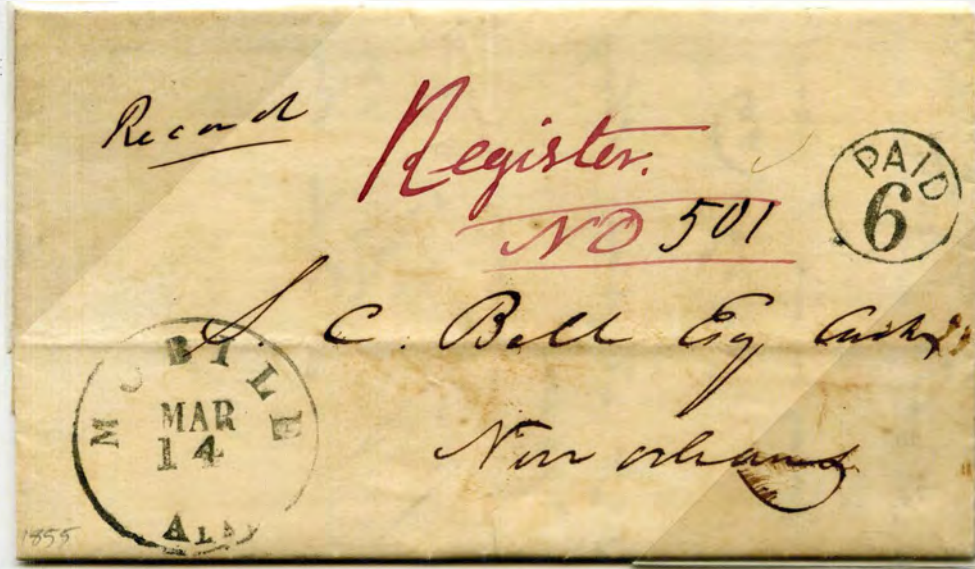 Record
Register.
PAID
6
NO 501
S. C. Bell Esq Cashr
New orleans
MOBILE
MAR
14
ALA
1855